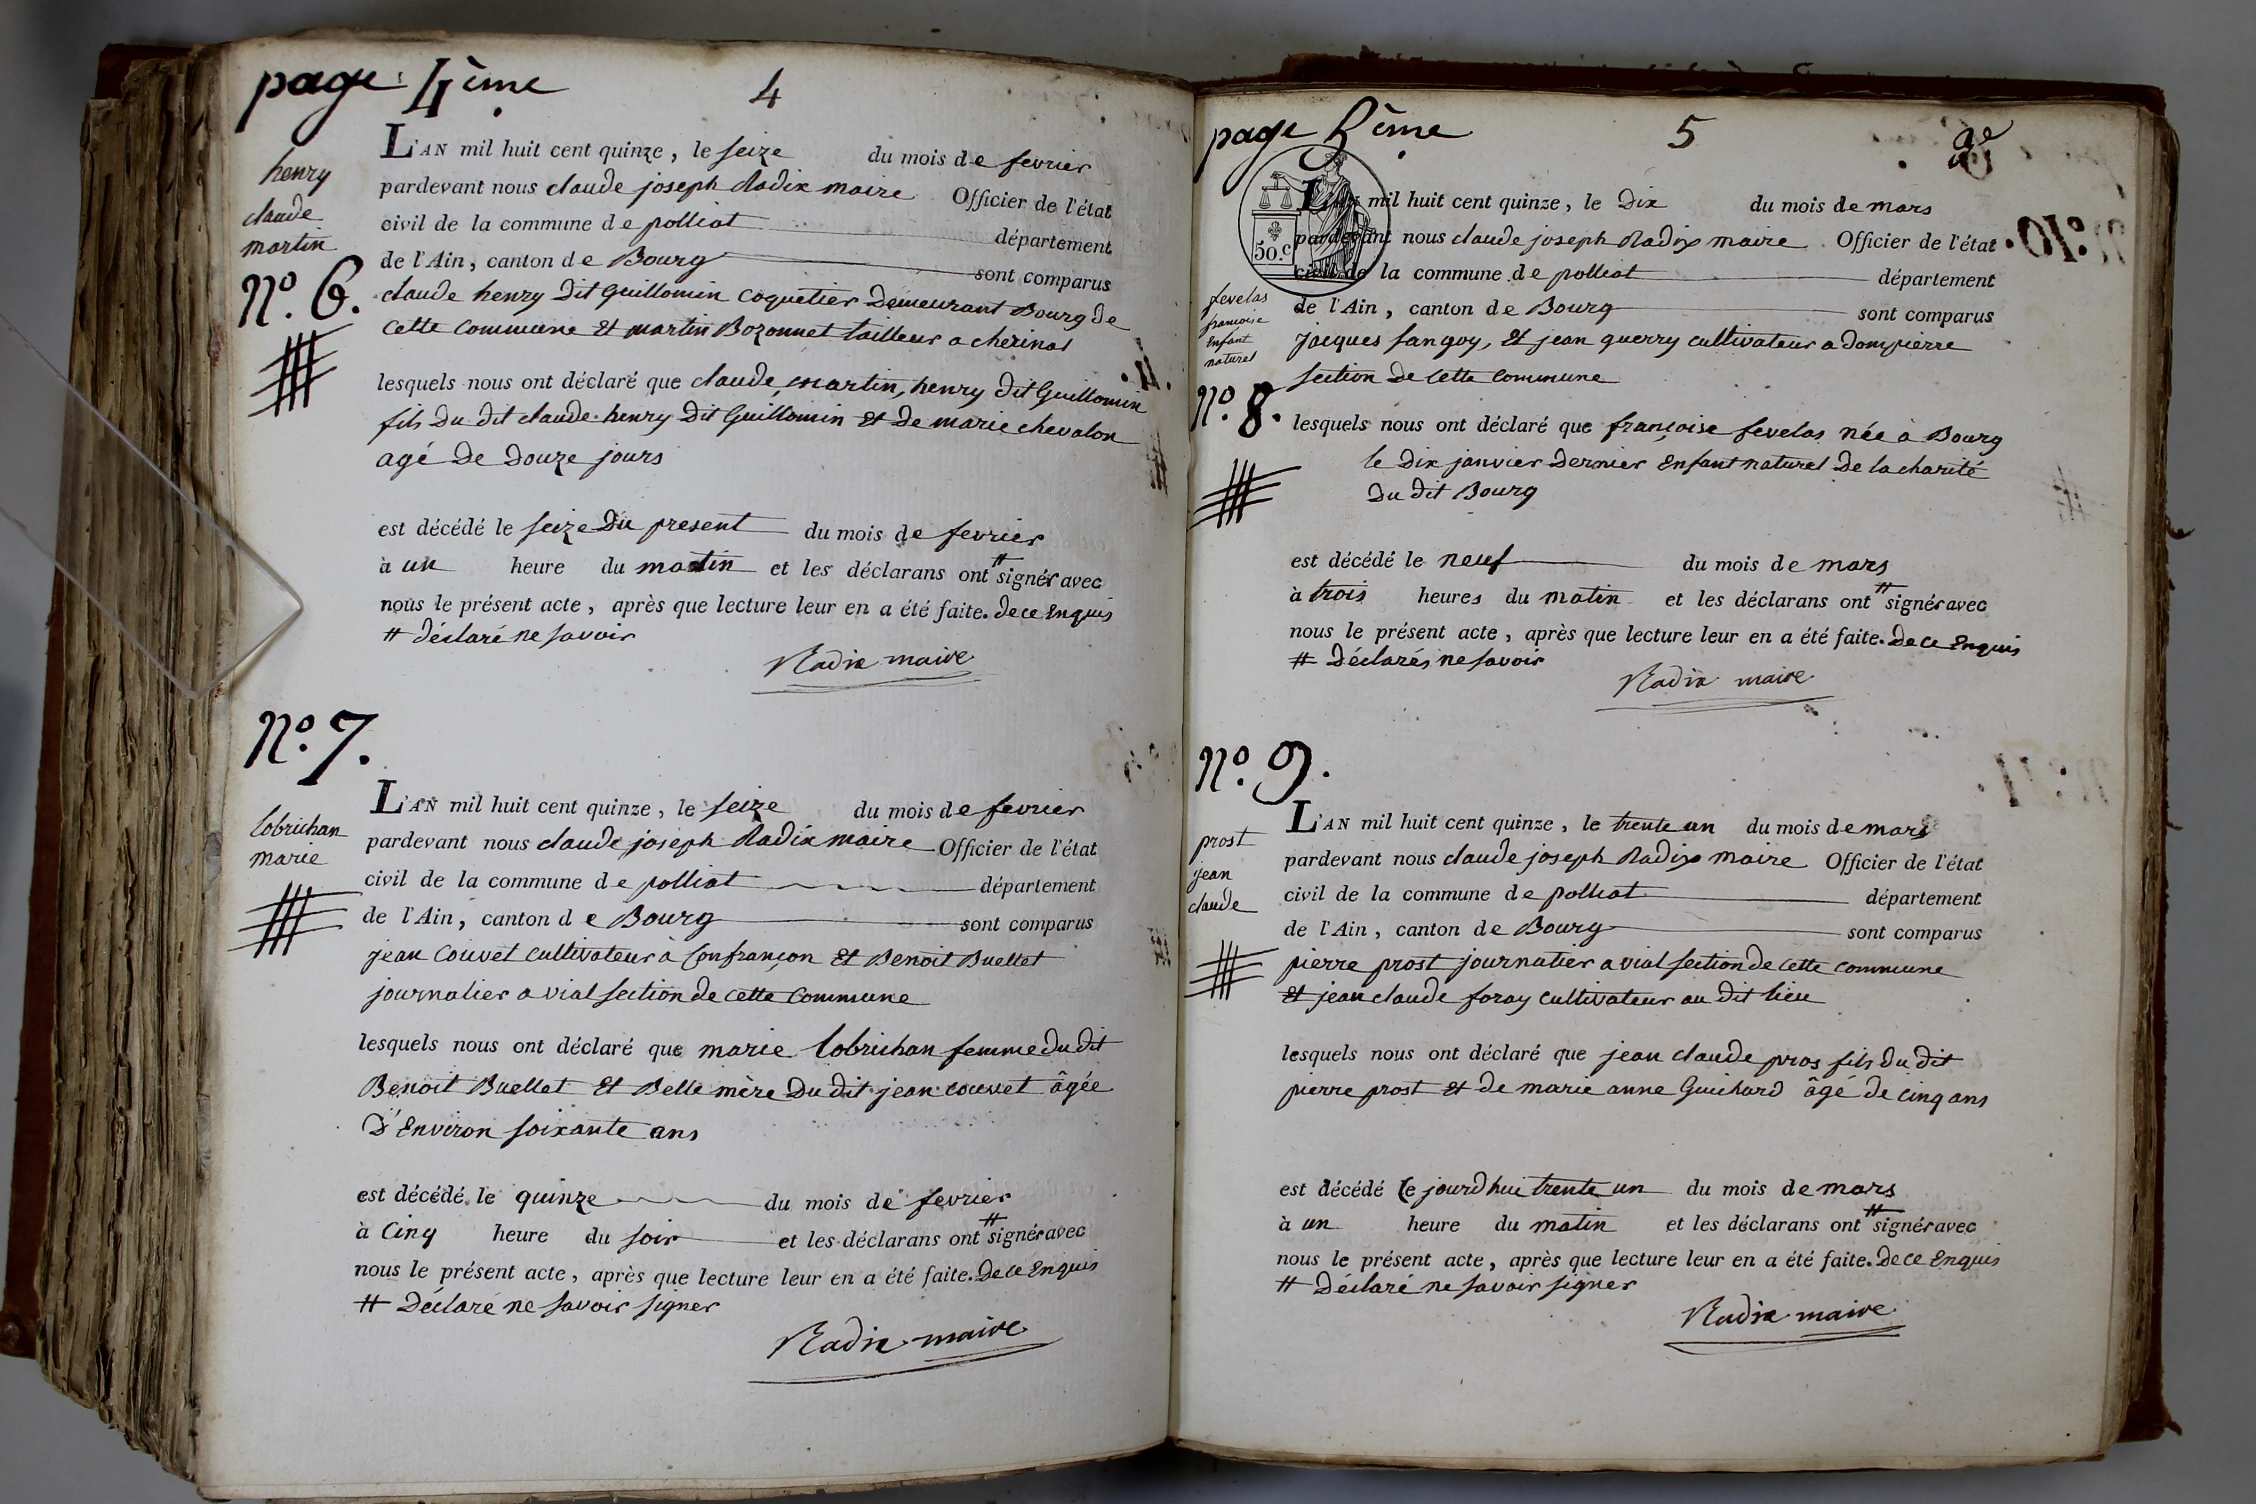 page 4ème 4
henry
claude
martin
N.º 6.
L'AN mil huit cent quinze, le seize du mois de fevrier
pardevant nous claude joseph Radix maire Officier de l'état
civil de la commune de polliat département
de l'Ain, canton de Bourg sont comparus
claude henry dit Guillomin coquetier demeurant Bourg de
cette commune et martin Bozonnet tailleur a cherinal
lesquels nous ont déclaré que claude, martin, henry dit Guillomin
fils du dit claude henry dit Guillomin et de marie chevalon
agé de douze jours
est décédé le seize du present du mois de fevrier
à un heure du matin et les déclarans ont # signés avec
nous le présent acte, après que lecture leur en a été faite. de ce enquis
# déclaré ne savoir
Radix maire
N.º 7.
lobrichan
marie
L'AN mil huit cent quinze, le seize du mois de fevrier
pardevant nous claude joseph Radix maire Officier de l'état
civil de la commune de polliat département
de l'Ain, canton de Bourg sont comparus
jean Couvet cultivateur à Confrançon et Benoit Buellet
journalier a vial section de cette commune
lesquels nous ont déclaré que marie lobrichan femme du dit
Benoit Buellet et Belle mère du dit jean couvet âgée
d'Environ soixante ans
est décédé le quinze du mois de fevrier
à Cinq heure du soir et les déclarans ont # signés avec
nous le présent acte, après que lecture leur en a été faite. de ce enquis
# déclaré ne savoir signer
Radix maire
page 5ème 5
50.c
fevelas
francoise
enfant
naturel
N.º 8.
L'AN mil huit cent quinze, le dix du mois de mars
pardevant nous claude joseph Radix maire Officier de l'état
civil de la commune de polliat département
de l'Ain, canton de Bourg sont comparus
jacques sangoy, et jean querry cultivateur a dompierre
section de cette commune
lesquels nous ont déclaré que françoise fevelas née à Bourg
le dix janvier dernier enfant naturel de la charité
du dit Bourg
est décédé le neuf du mois de mars
à trois heures du matin et les déclarans ont # signés avec
nous le présent acte, après que lecture leur en a été faite. de ce enquis
# déclarés ne savoir
Radix maire
N.º 9.
prost
jean
claude
L'AN mil huit cent quinze, le trente un du mois de mars
pardevant nous claude joseph Radix maire Officier de l'état
civil de la commune de polliat département
de l'Ain, canton de Bourg sont comparus
pierre prost journalier a vial section de cette commune
et jean claude foray cultivateur au dit lieu
lesquels nous ont déclaré que jean claude pros fils du dit
pierre prost et de marie anne Guichard âgé de cinq ans
est décédé ce jourd'hui trente un du mois de mars
à un heure du matin et les déclarans ont # signés avec
nous le présent acte, après que lecture leur en a été faite. de ce enquis
# déclaré ne savoir signer
Radix maire